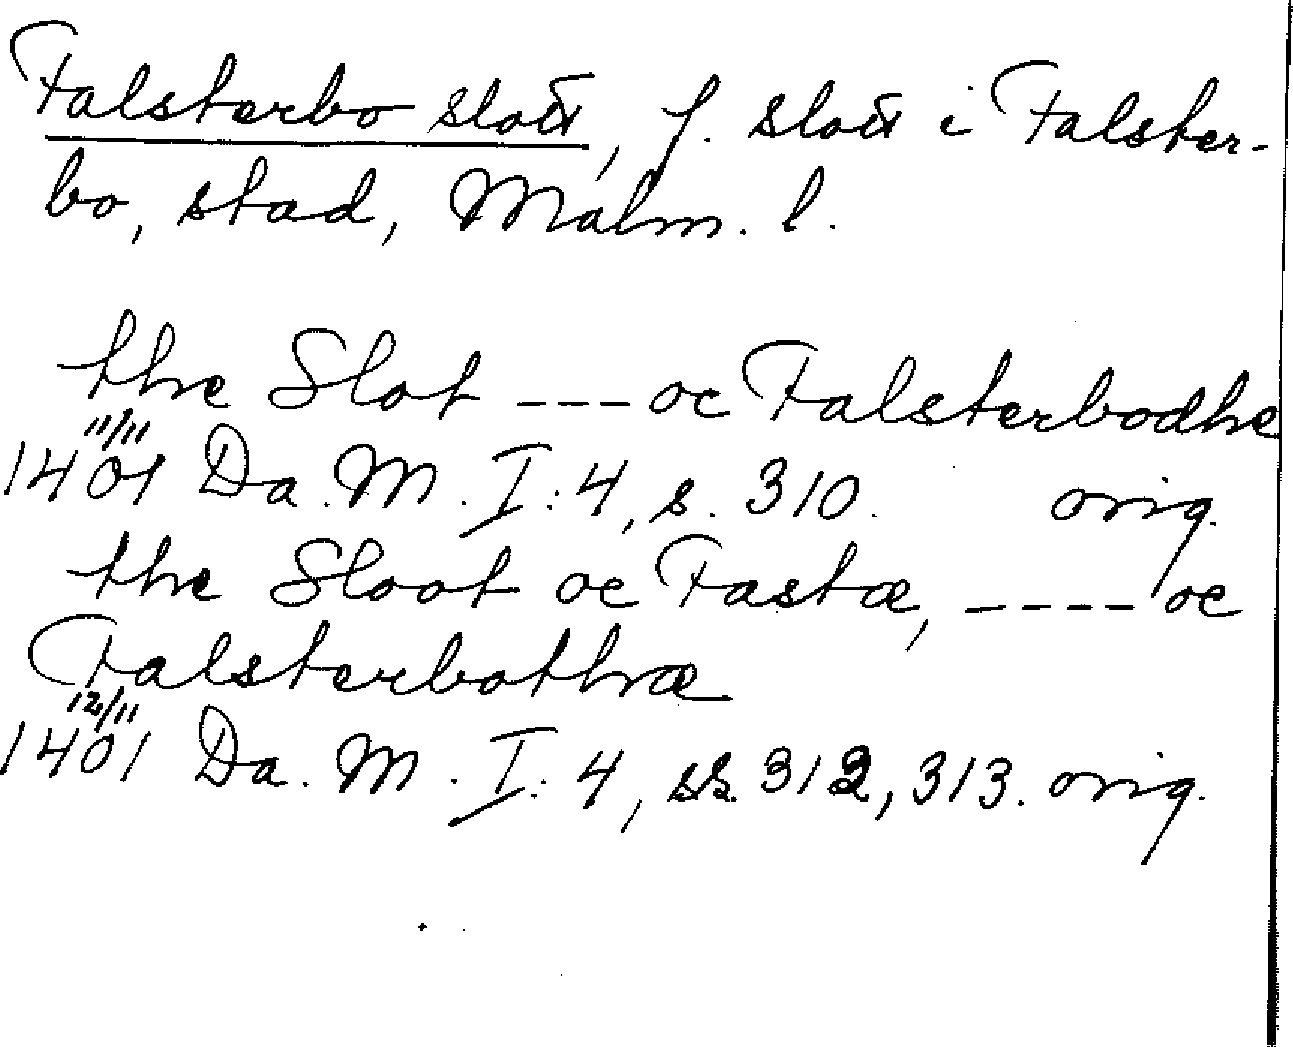 Falsterbo slott, f. slott i Falster-
bo, stad, Malm. l.
the Slot --- oc Falsterbodhe
11/11
1401 Da. M. I:4, s. 310. orig.
the Sloot oc Fastæ, ---- oc
Falsterbothæ
12/11
1401 Da. M. I:4, ss. 312, 313. orig.